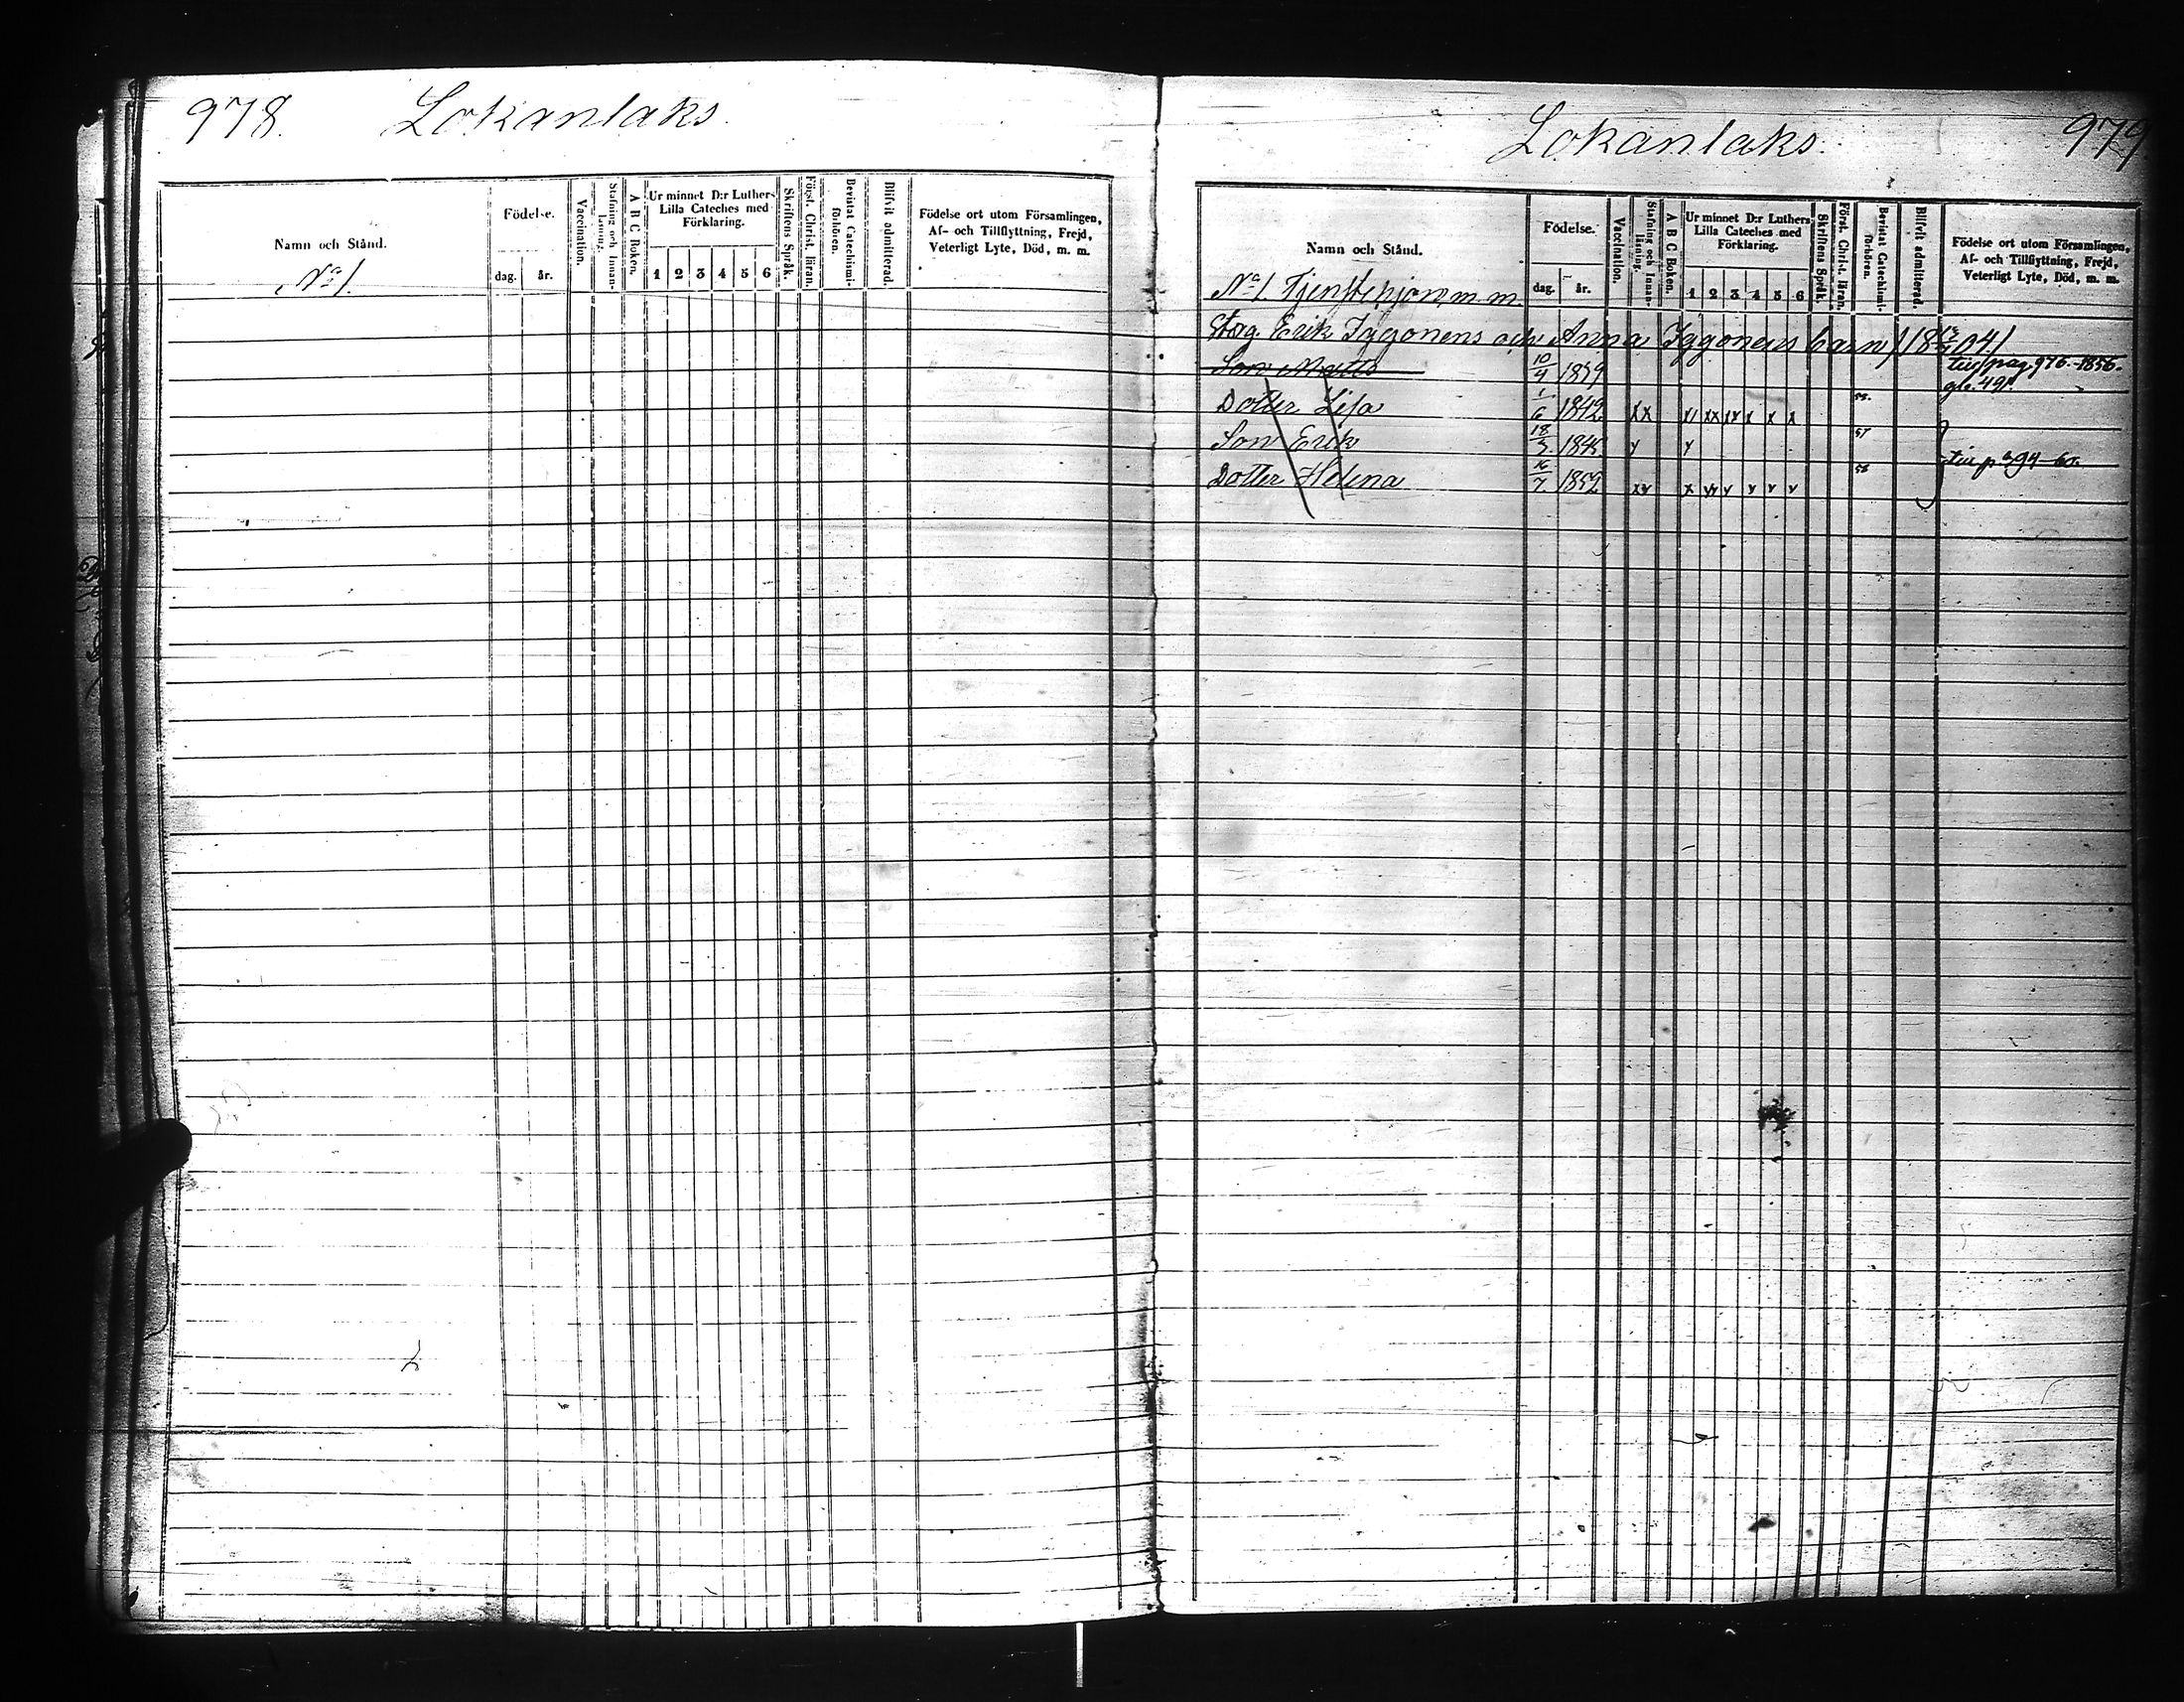 978. Lokanlaks.
Namn och Stånd.
Födelse.
dag. år.
Vaccination.
Stafning och Innan-läsning.
A B C Boken.
Ur minnet D:r Luthers
Lilla Cateches med
Förklaring.
1 2 3 4 5 6
Skriftens Språk.
Först. Christ. läran.
Bevistat Catechismi-förhören.
Blifvit admitterad.
Födelse ort utom Församlingen,
Af- och Tillflyttning, Frejd,
Veterligt Lyte, Död, m. m.
No 1.
Lokanlaks. 979
Namn och Stånd.
Födelse.
dag. år.
Vaccination.
Stafning och Innan-läsning.
A B C Boken.
Ur minnet D:r Luthers
Lilla Cateches med
Förklaring.
1 2 3 4 5 6
Skriftens Språk.
Först. Christ. läran.
Bevistat Catechismi-förhören.
Blifvit admitterad.
Födelse ort utom Församlingen,
Af- och Tillflyttning, Frejd,
Veterligt Lyte, Död, m. m.
No 1. Tjenstehjon, m. m.
Erik Iggonens och Anna Iggonens barn
Son Matts 10/4 1839 pag. 976. 1856.
491.
Dotter Lisa 1/6 1842 x x
Son Erik 18/3 1845 57
Dotter Helena 16/7 1852 58